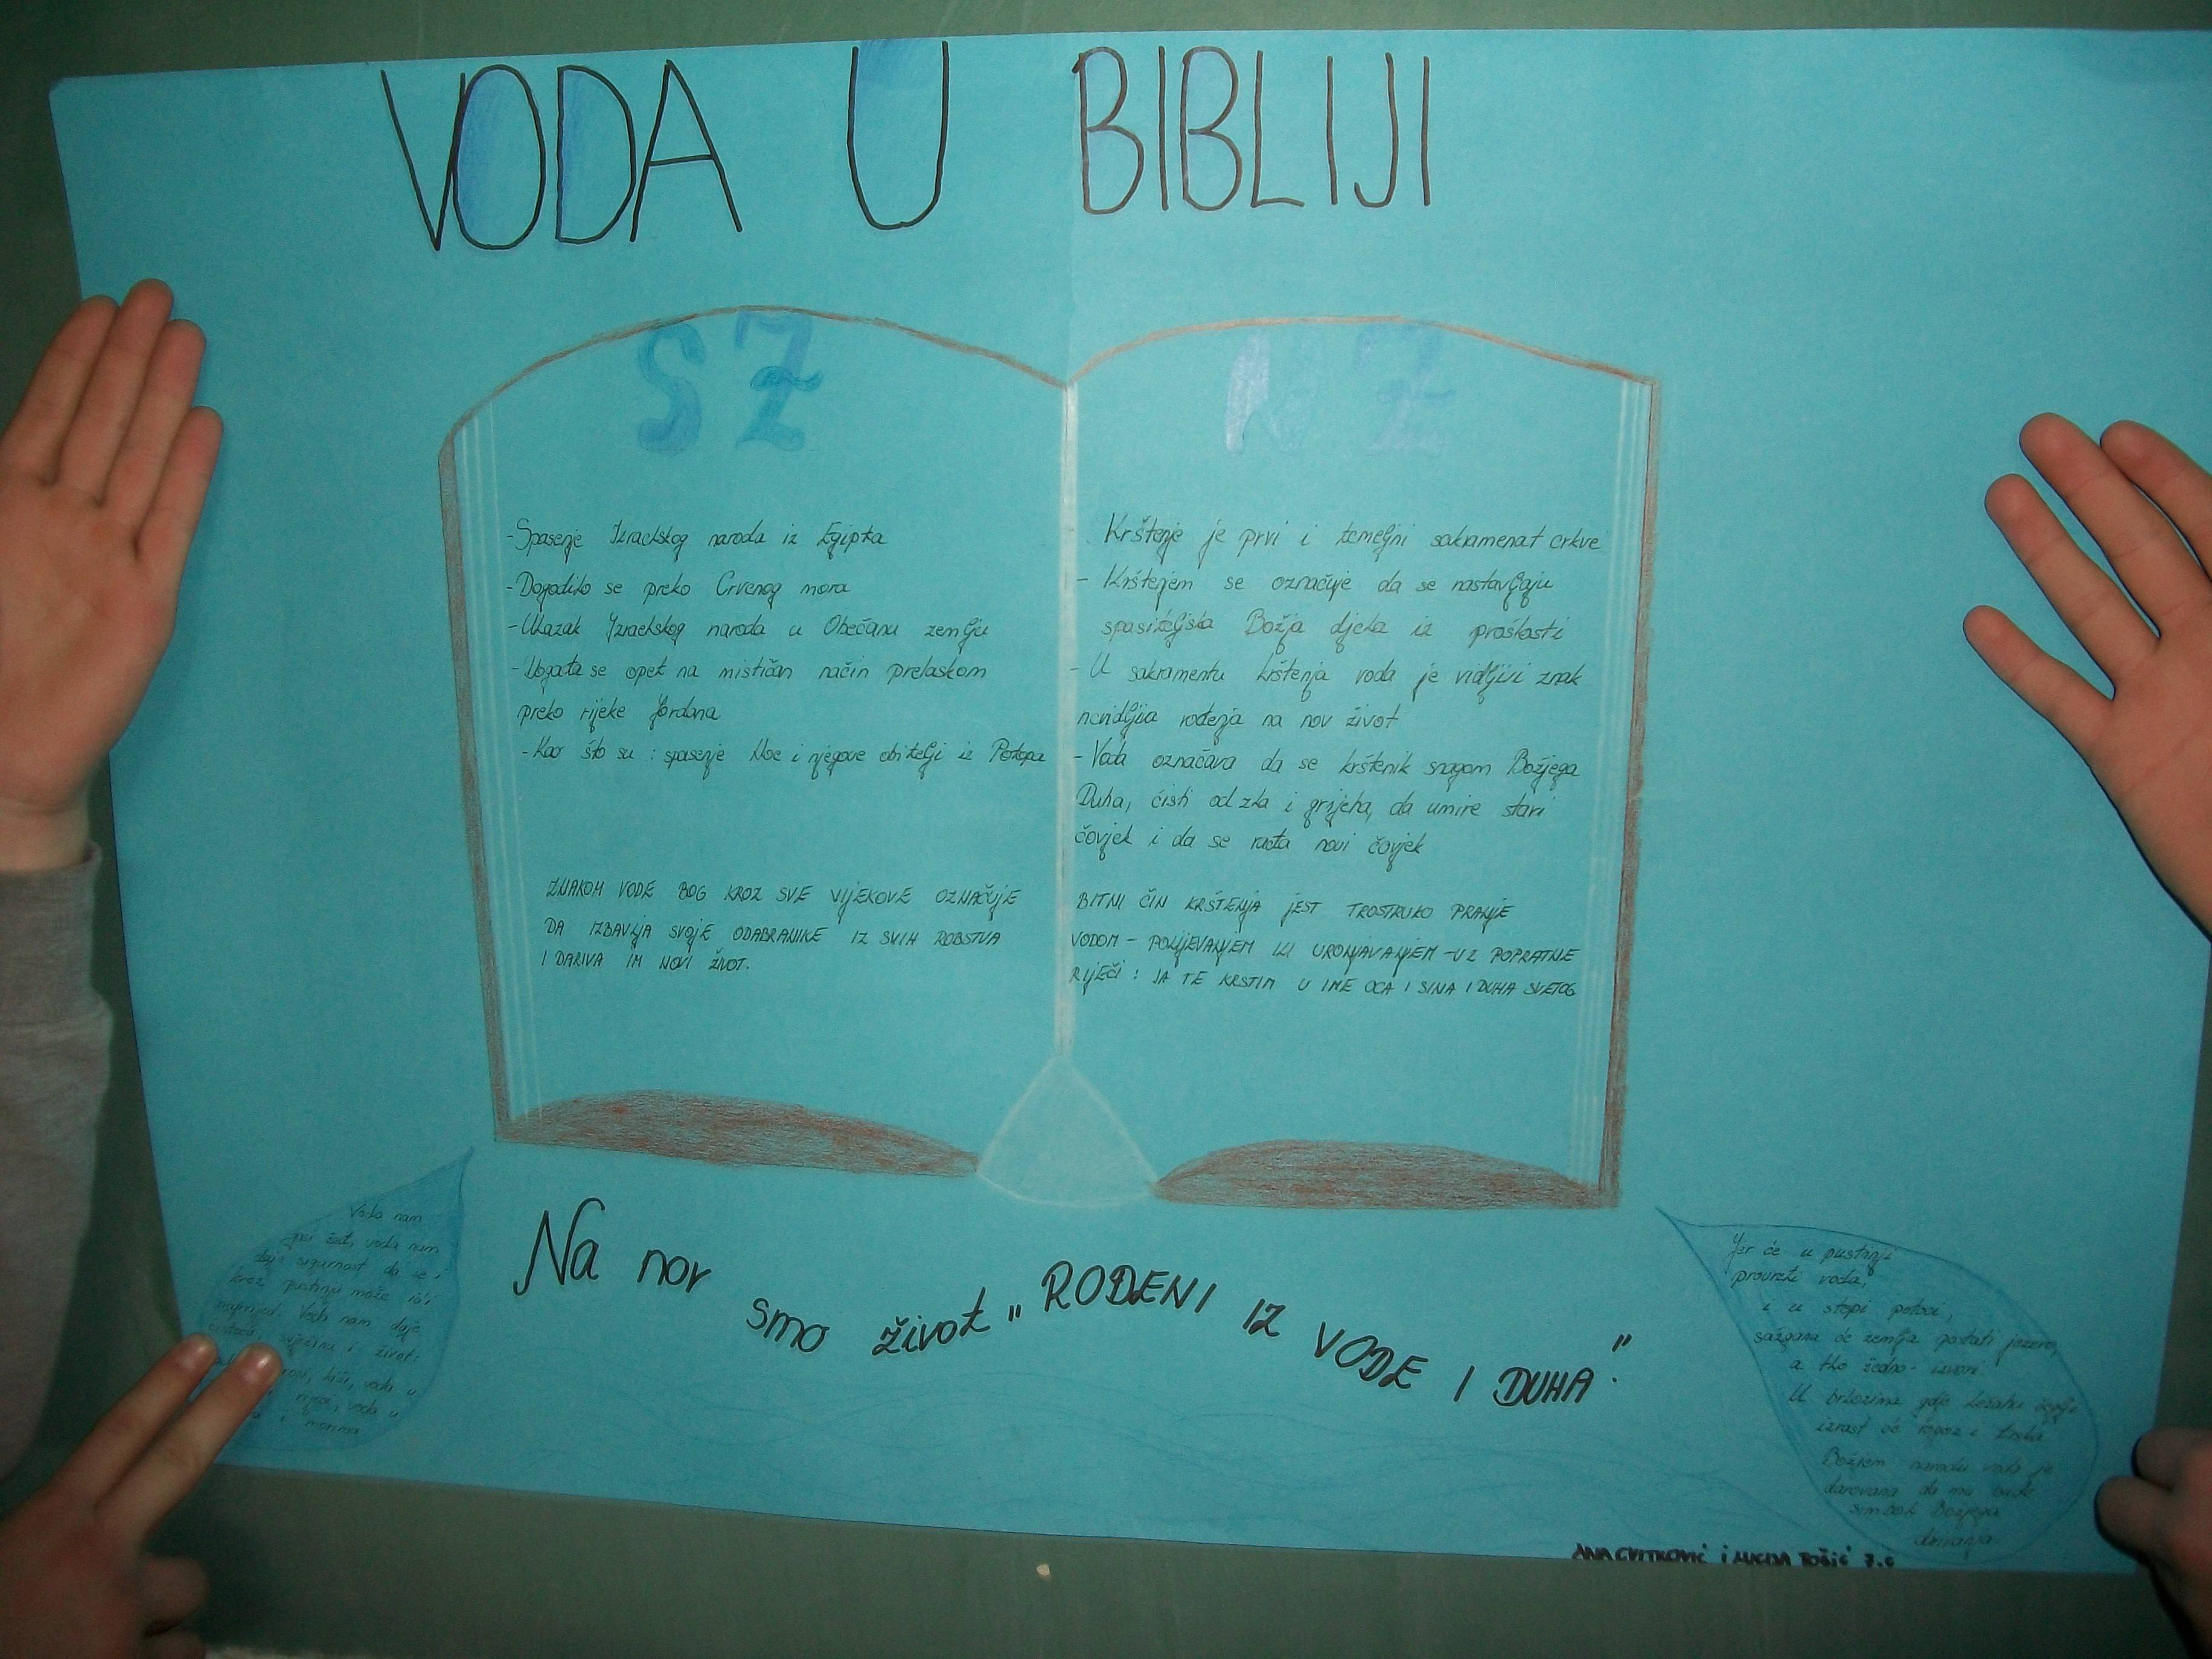 VODA U BIBLIJI
SZ
NZ
-Spasenje Izraelskog naroda iz Egipta
-Dogodilo se preko Crvenog mora
-Ulazak Izraelskog naroda u Obećanu zemlju
-Događa se opet na mističan način prelaskom
preko rijeke Jordana
-Kao što su : spasenje Noe i njegove obitelji iz Potopa
ZNAKOM VODE BOG KROZ SVE VIJEKOVE OZNAČUJE
DA IZBAVLJA SVOJE ODABRANIKE IZ SVIH ROBSTVA
I DARIVA IM NOVI ŽIVOT.
- Krštenje je prvi i temeljni sakramenat crkve
- Krštenjem se označuje da se nastavljaju
spasiteljska Božja djela iz prošlosti
- U sakramentu krštenja voda je vidljivi znak
nevidljiva rođenja na nov život
- Voda označava da se krštenik snagom Božjega
Duha, čisti od zla i grijeha, da umire stari
čovjek i da se rađa novi čovjek
BITNI ČIN KRŠTENJA JEST TROSTRUKO PRANJE
VODOM - POLIJEVANJEM ILI URONJAVANJEM - UZ POPRATNE
RIJEČI : JA TE KRSTIM U IME OCA I SINA I DUHA SVETOG
Na nov smo život "ROĐENI IZ VODE I DUHA."
Voda nam
gasi žeđ, voda nam
daje sigurnost da se i
kroz pustinju može ići
naprijed. Voda nam daje
čistoću, svježinu i život:
kiši, voda u
rijeci, voda u
i morima
Jer će u pustinji
provreti voda,
i u stepi potoci,
sažgana će zemlja postati jezero,
a tlo žedno - izvori.
U brlozima gdje ležahu čaglji
izrast će rogoz i trska
Božjem narodu voda je
darovana da mu bude
simbol Božjega
ANA CVITKOVIĆ I LUCIJA TOŠIĆ 7.c